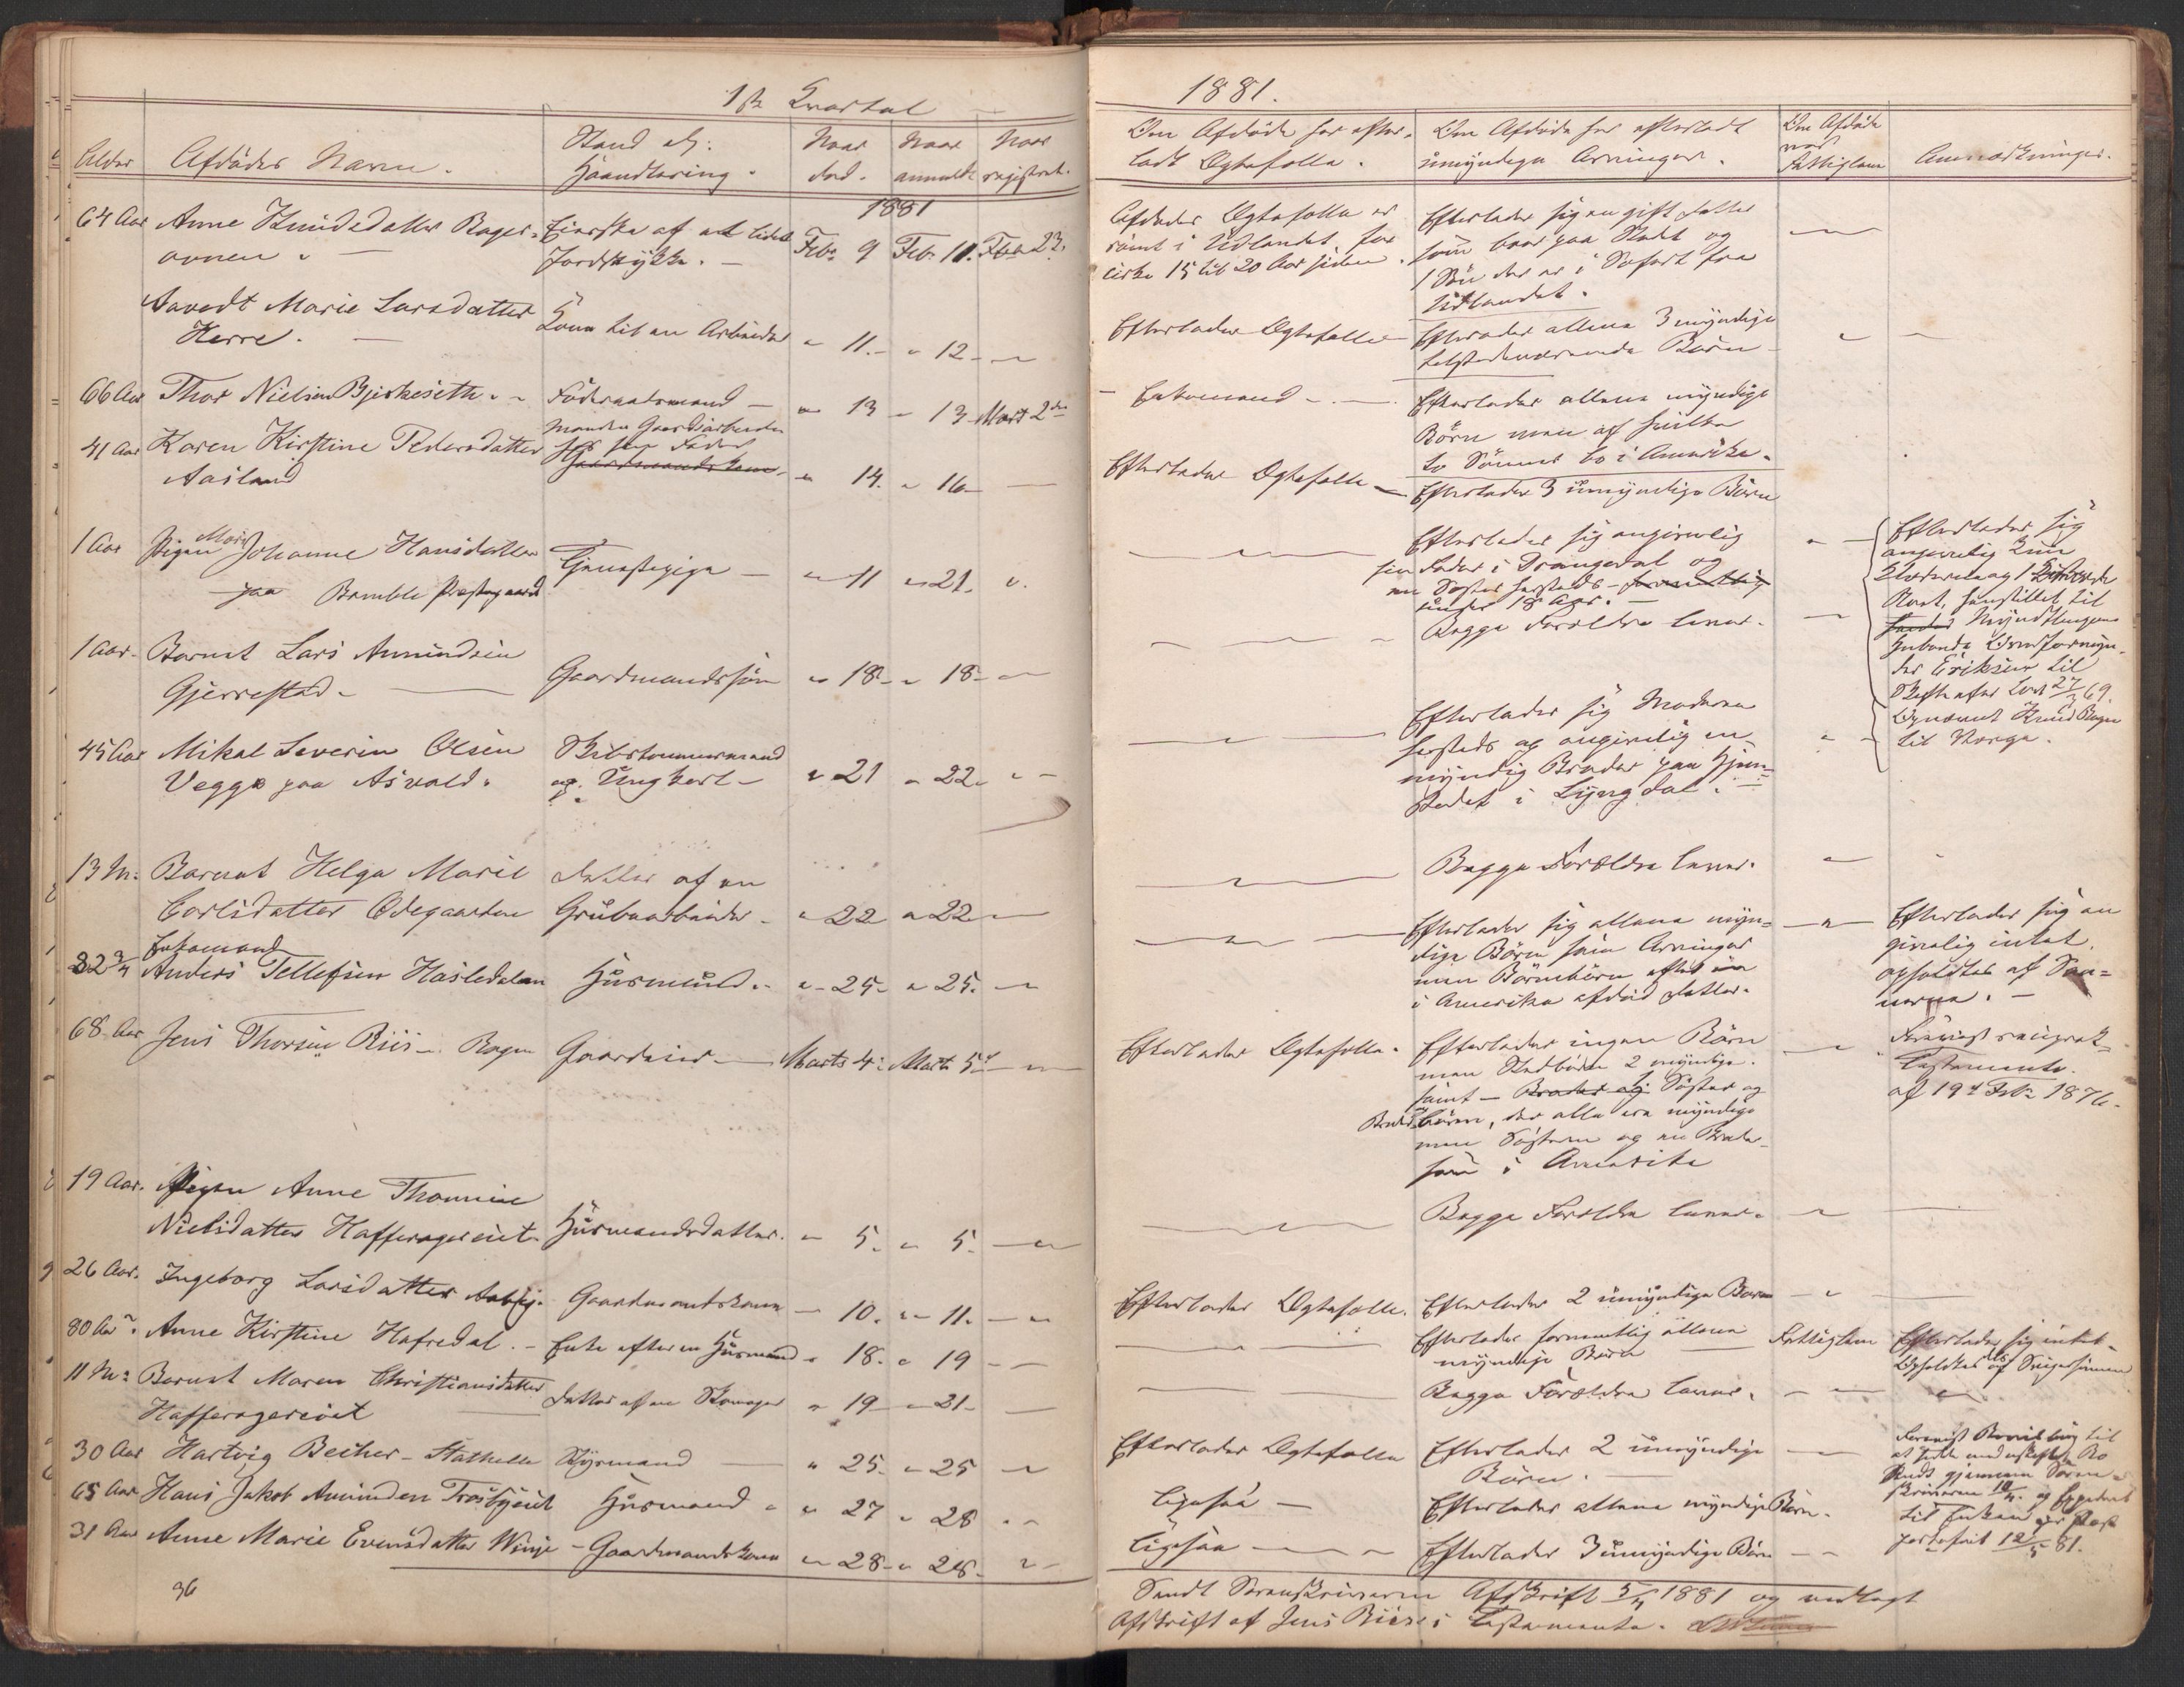 1ste Kvartal
Alder
Afdødes Navn.
Stand og
Haandtering.
Naar
død.
Naar
anmeldt
Naar
registrert.
1881
64 Aar Anne Knudsdatter Bager-
ovnen.
Eierske af et lidet
Jordstykke.
Feb. 9 Feb. 11. Feb. 23.
Aavedt Marie Larsdatter
Herre.
Kone til en Arbeider
" 11. " 12
66 Aar Thor Nielsen Bjerkeseth.
Føderaadsmand
" 13 " 13 Marts 2den
41 Aar Karen Kirstine Pedersdatter
Aasland
Manden Gaardarbeider
hos sin Fader
Gaardmandskone
" 14. " 16
1 Aar Pigen Maren Johanne Hansdatter
paa Bamble Prestegaard
Tjenestepige
" 11 " 21. "
1 Aar. Barnet Lars Amundsen
Gjerrestad.
Gaardmandssøn
" 18 " 18
45 Aar Mikal Severin Olsen
Vegge paa Asvald.
Skibstømmermand
og Ungkarl
" 21 " 22
13 M: Barnet Helga Marie
Carlsdatter Ødegaarden
Datter af en
Grubearbeider
" 22 " 22
Enkemand
82 3/4 Anders Tellefsen Hasledalen
Husmand.
" 25 " 25.
68 Aar Jens Thorsen Riis Rogn
Gaardeier
Marts 4: Marts 5te
19 Aar. Pigen Anne Thomine
Nielsdatter Hafferagereiet
Husmandsdatter.
" 5. " 5.
26 Aar. Ingeborg Larsdatter Aaby.
Gaardmandskone
" 10. " 11.
80 Aar. Anne Kirstine Hafredal.
Enke efter en Husmand
" 18. " 19
11 M: Barnet Maren Christiansdatter
Hafferagereiet
Datter af en Skomager
" 19 " 21
30 Aar Hartvig Becher Stathelle
Styrmand
" 25. " 25
65 Aar Hans Jakob Amundsen Trosbyeiet
Husmand
" 27 " 28
31 Aar Anne Marie Evensdatter Winje
Gaardmandskone
" 28 " 28
36
1881.
Om Afdøde har efter-
ladt Ægtefælle.
Om Afdøde har efterladt
umyndige Arvinger.
Om Afdøde
nød
Fattiglem
Anmærkninger.
Afdødes Ægtefælle er
rømt i Udlandet, for
cirka 15 til 20 Aar siden.
Efterlader sig en gift Datter
som boer paa Stedet og
1 Søn der er i Søfart fra
Udlandet.
Efterlader Ægtefælle
Efterlader allene 3 myndige
tilstedeværende Børn
Enkemand
Efterlader allene myndige
Børn men af hvilke
to Sønner bo i Amerika.
Efterlader Ægtefælle
Efterlader 3 umyndige Børn
Efterlader sig angivelig
sin Fader i Drangedal og
en Søster sammesteds
under 18 Aar.
Efterlader sig
angivelig kun
Klæder og 1
til
Myndlingens
Eriksen til
27/3 69.
til Norge.
Begge Forældre lever.
Efterlader sig Moderen
hersteds og angivelig en
myndig Broder paa Hjem-
stedet i Lyngdal.
Begge Forældre lever.
Efterlader sig allene myn-
dige Børn som Arvinger
men Børnebørn efter en
i Amerika afdød Datter.
Efterlader sig an
givelig intet,
opholdtes af Søn-
nerne.
Efterlader Ægtefælle.
Efterlader ingen Børn
men Stedbørn 2 myndige.
samt Broder og Søster og
Broderbørn, der alle ere myndige
men Søsteren og en Broder-
søn i Amerika
Testamente.
af 19de Feb. 1876.
Begge Forældre lever.
Efterlader Ægtefælle.
Efterlader 2 umyndige Børn
Efterlader formentlig allene
myndige Børn
Fattiglem
Efterlader sig intet
Opholdtes af Svigersønnen
Begge Forældre lever.
Efterlader Ægtefælle
Efterlader 2 umyndige
Børn.
Forevist Bevilling til
at sidde i uskiftet Bo
Sendt gjennem Soren-
skriveren
til Enken
portofrit 12/5 81.
ligesaa
Efterlader allene myndige Børn.
ligesaa
Efterlader 3 umyndige Børn
Sendt Sorenskriveren Afskrift 5/4 1881 og vedlagt
Afskrift af Jens Riises Testamente.